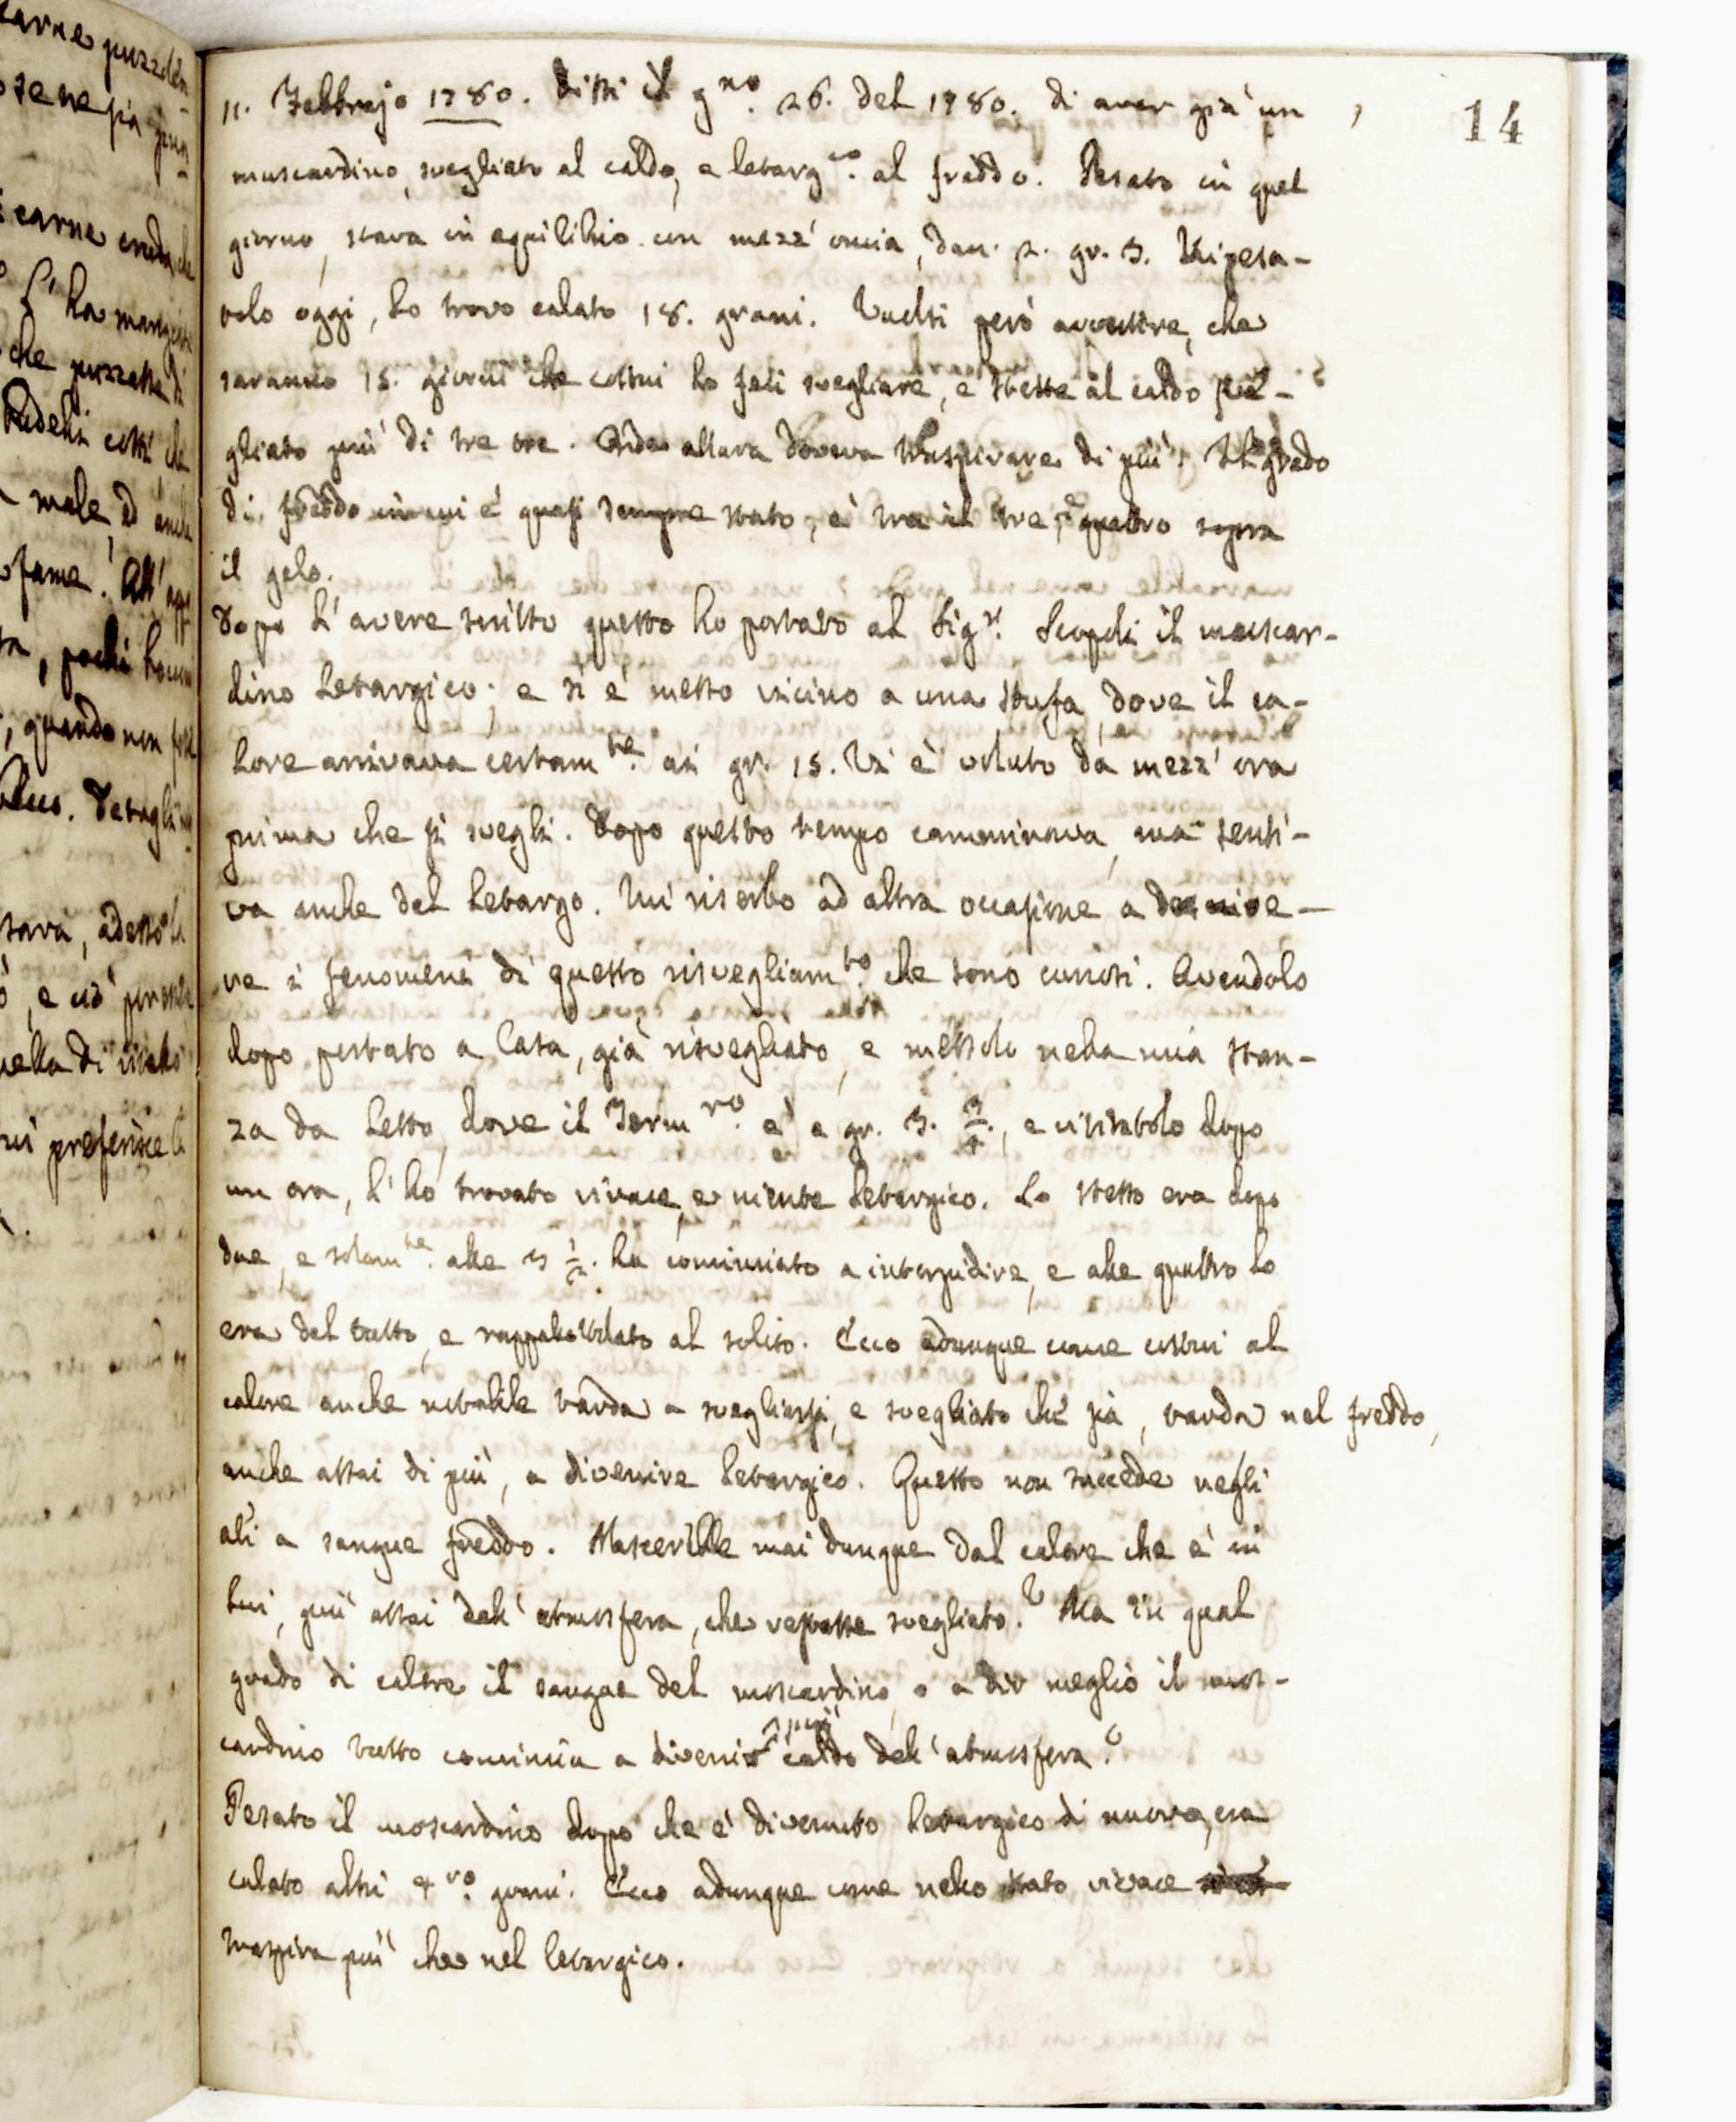 14
11. Febbrajo 1780. Dissi il g.no 26. del 1780. di aver già un
muscardino, svegliato al caldo, e letarg.co al freddo. Pesato in quel
giorno, stava in equilibrio con mezz'oncia, dan. 2. gr. 3. Ripesa-
tolo oggi, lo trovo calato 18. grani. Vuolsi però avvertire, che
saranno 15. giorni che costui lo feci svegliare, e stette al caldo sve-
gliato più di tre ore. Onde allora doveva traspirare di più. Il grado
di freddo in cui è quasi sempre stato, è tra il tre, e quattro sopra
il gelo.
Dopo l'avere scritto questo ho portato al Sig.r Scopoli il moscar-
dino letargico; e si è messo vicino a una stufa, dove il ca-
lore arrivava certam.te ai gr. 15. Vi è voluto da mezz'ora
prima che si svegli. Dopo questo tempo camminava, ma senti-
va anche del letargo. Mi riserbo ad altra occasione a descrive-
re i fenomeni di questo risvegliam.to che sono curiosi. Avendolo
dopo portato a Casa, già risvegliato, e messolo nella mia stan-
za da letto, dove il Term.ro è a gr. 3. 3/4., e visitatolo dopo
un ora, l'ho trovato vivace, e niente letargico. Lo stesso era dopo
due, e solam.te alle 3 1/2. ha cominciato a intorpidire, e alle quattro lo
era del tutto, e rappallottolato al solito. Ecco adunque come costui al
calore anche notabile tarda a svegliarsi, e svegliato che sia, tarda nel freddo,
anche assai di più, a divenire letargico. Questo non succede negli
ali a sangue freddo. Nascerebbe mai dunque dal calore che è in
lui, più assai dell'atmosfera, che restasse svegliato? Ma in qual
grado di calore il sangue del moscardino, o a dir meglio il mos-
cardino tutto comincia a divenir più caldo dell'atmosfera?
Pesato il moscardino dopo che è divenuto letargico di nuovo, era
calato altri 4.ro grani. Ecco adunque come nello stato vivace
traspira più che nel letargico.